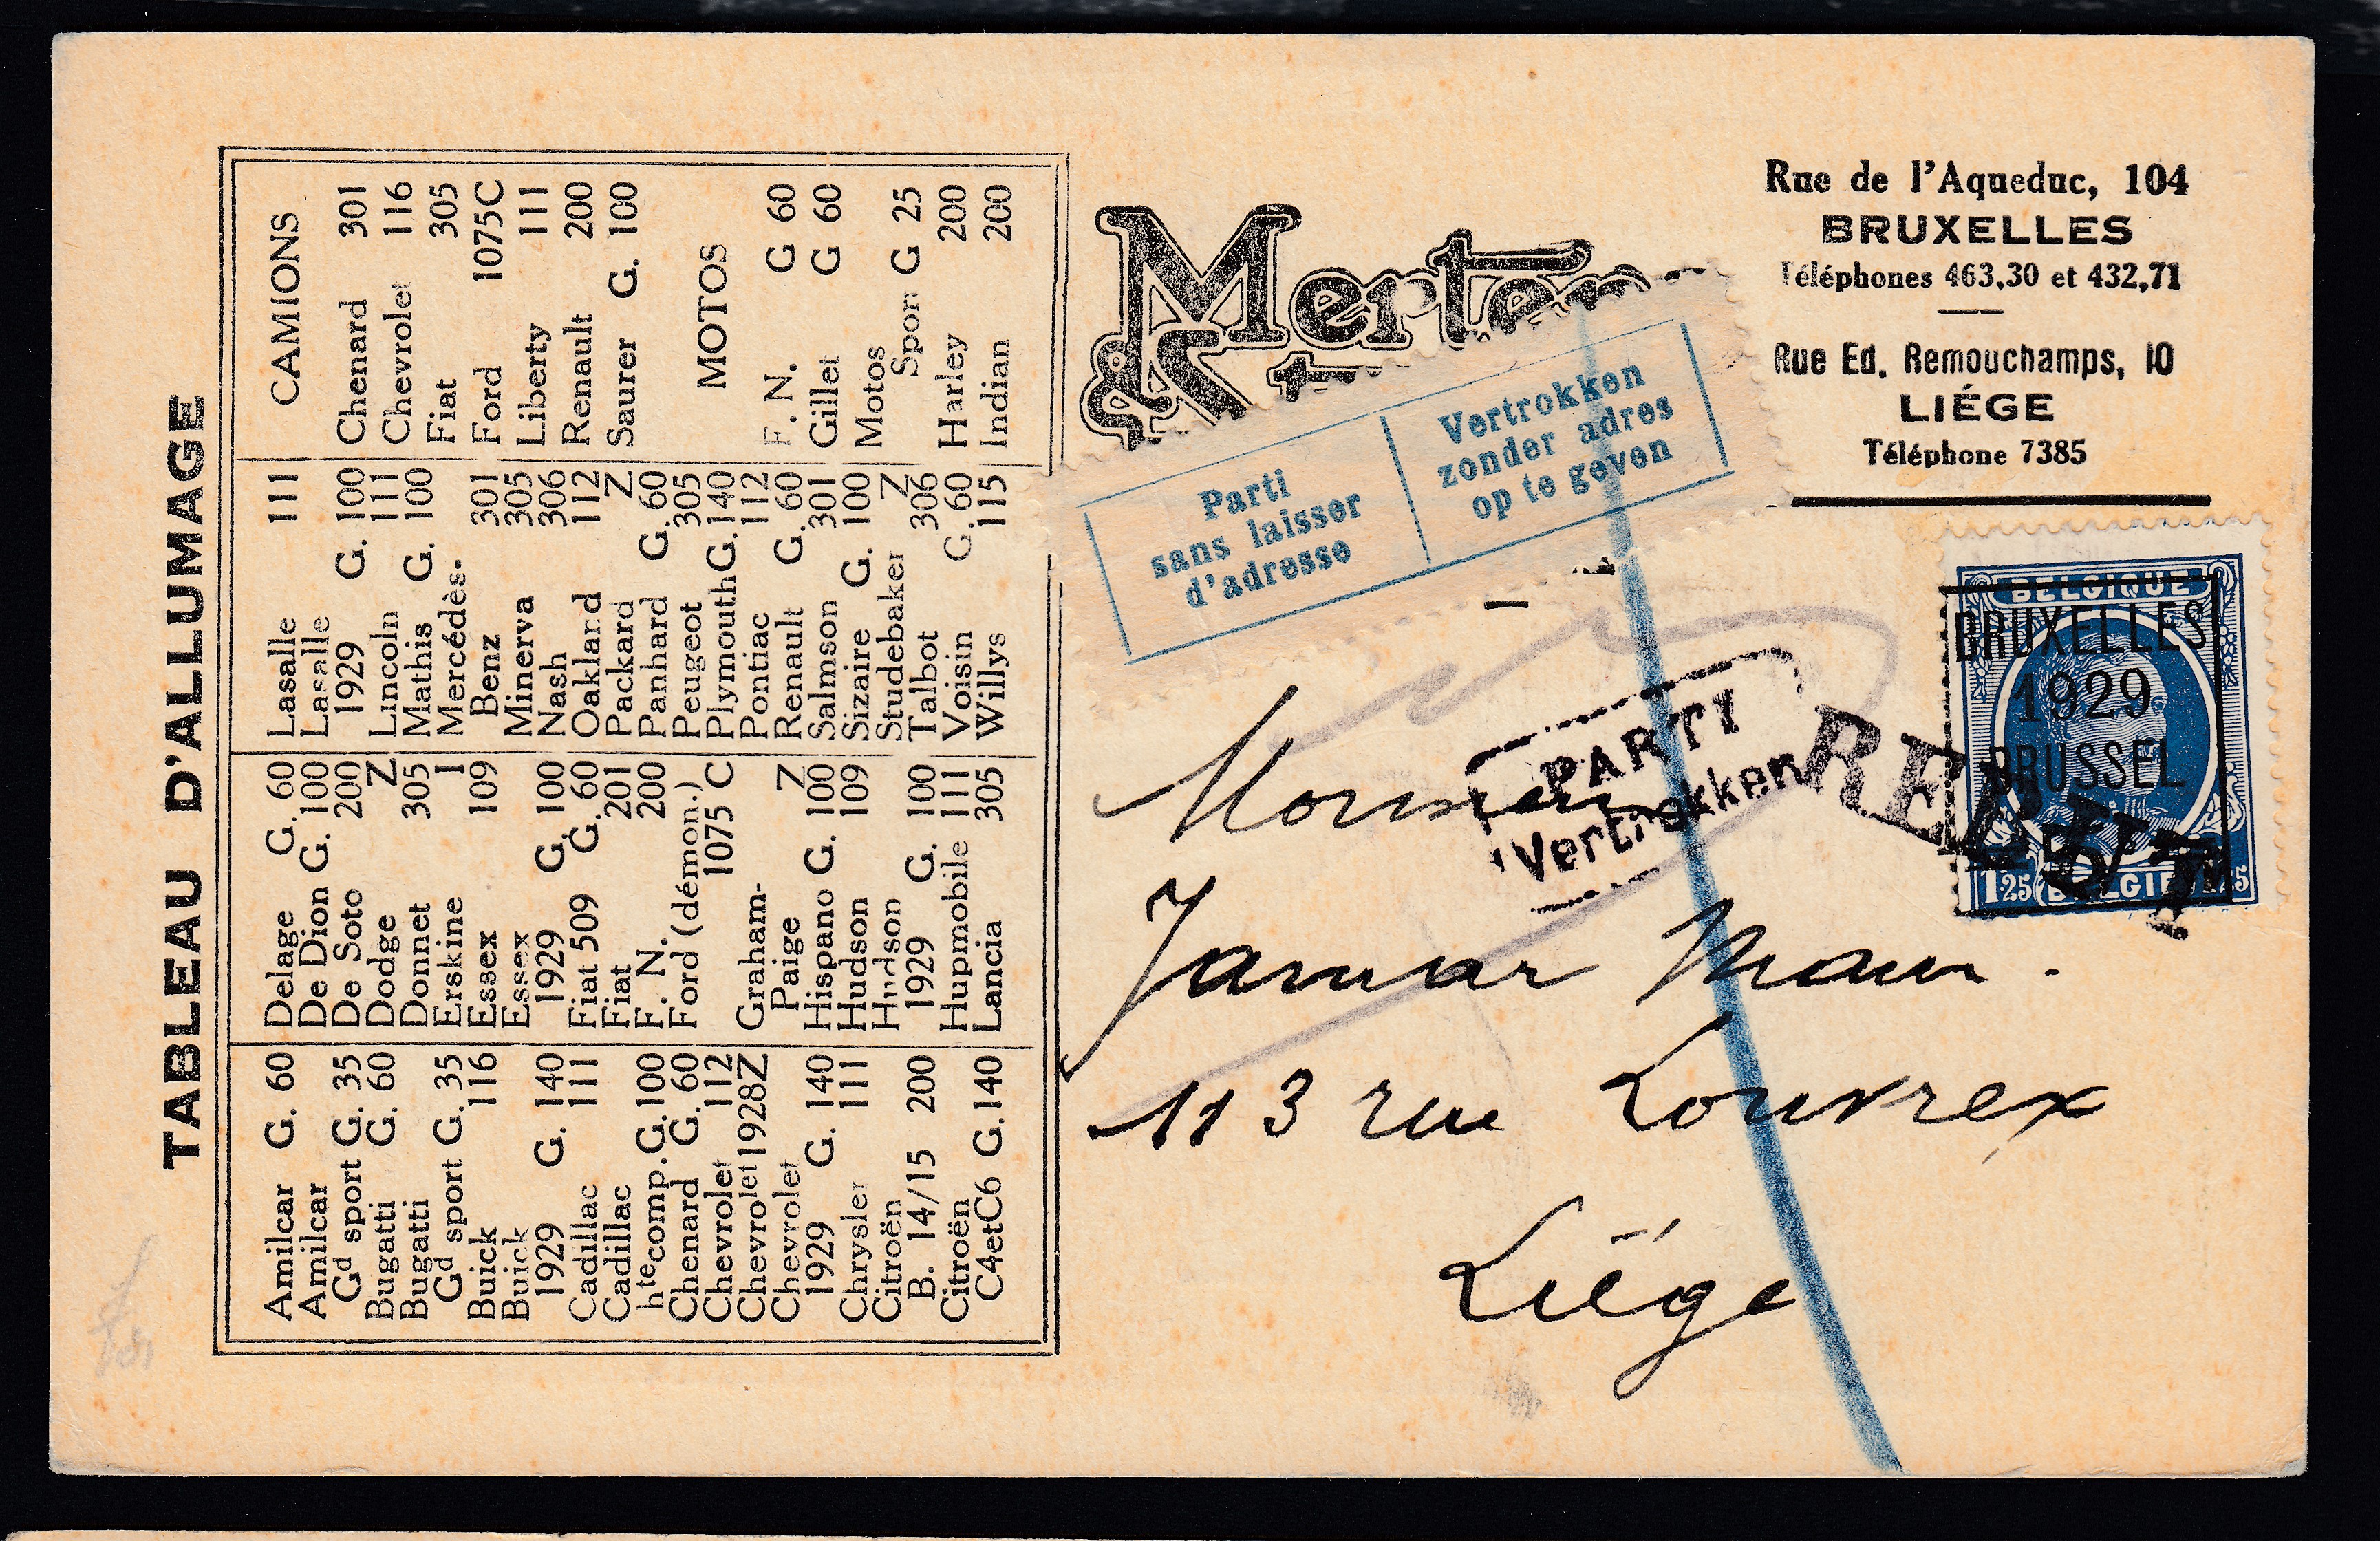 TABLEAU D'ALLUMAGE
Amilcar G. 60
Amilcar
Gd sport G. 35
Bugatti G. 60
Bugatti
Gd sport G. 35
Buick 116
Buick
1929 G. 140
Cadillac 111
Cadillac
hte comp. G. 100
Chenard G. 60
Chevrolet 112
Chevrolet 1928 Z
Chevrolet
1929 G. 140
Chrysler 111
Citroën
B. 14/15 200
Citroën
C4 et C6 G. 140
Delage G. 60
De Dion G. 100
De Soto 200
Dodge Z
Donnet 305
Erskine I
Essex 109
Essex
1929 G. 100
Fiat 509 G. 60
Fiat 201
F. N. 200
Ford (démon.)
1075 C
Graham-
Paige Z
Hispano G. 100
Hudson 109
Hudson
1929 G. 100
Hupmobile 111
Lancia 305
Lasalle 111
Lasalle
1929 G. 100
Lincoln 111
Mathis G. 100
Mercédès-
Benz 301
Minerva 305
Nash 306
Oakland 112
Packard Z
Panhard G. 60
Peugeot 305
Plymouth G. 140
Pontiac 112
Renault G. 60
Salmson 301
Sizaire G. 100
Studebaker Z
Talbot 306
Voisin G. 60
Willys 115
CAMIONS
Chenard 301
Chevrolet 116
Fiat 305
Ford 1075C
Liberty 111
Renault 200
Saurer G. 100
MOTOS
F. N. G 60
Gillet G 60
Motos
Sport G 25
Harley 200
Indian 200
Rue de l'Aqueduc, 104
BRUXELLES
Téléphones 463,30 et 432,71
Rue Ed. Remouchamps, 10
LIÉGE
Téléphone 7385
Parti
sans laisser
d'adresse
Vertrokken
zonder adres
op te geven
BELGIQUE
BRUXELLES
1929
BRUSSEL
5c
1.25 BELGIË 1.25
PARTI
Vertrokken
Monsieur
113 rue Louvrex
Liége